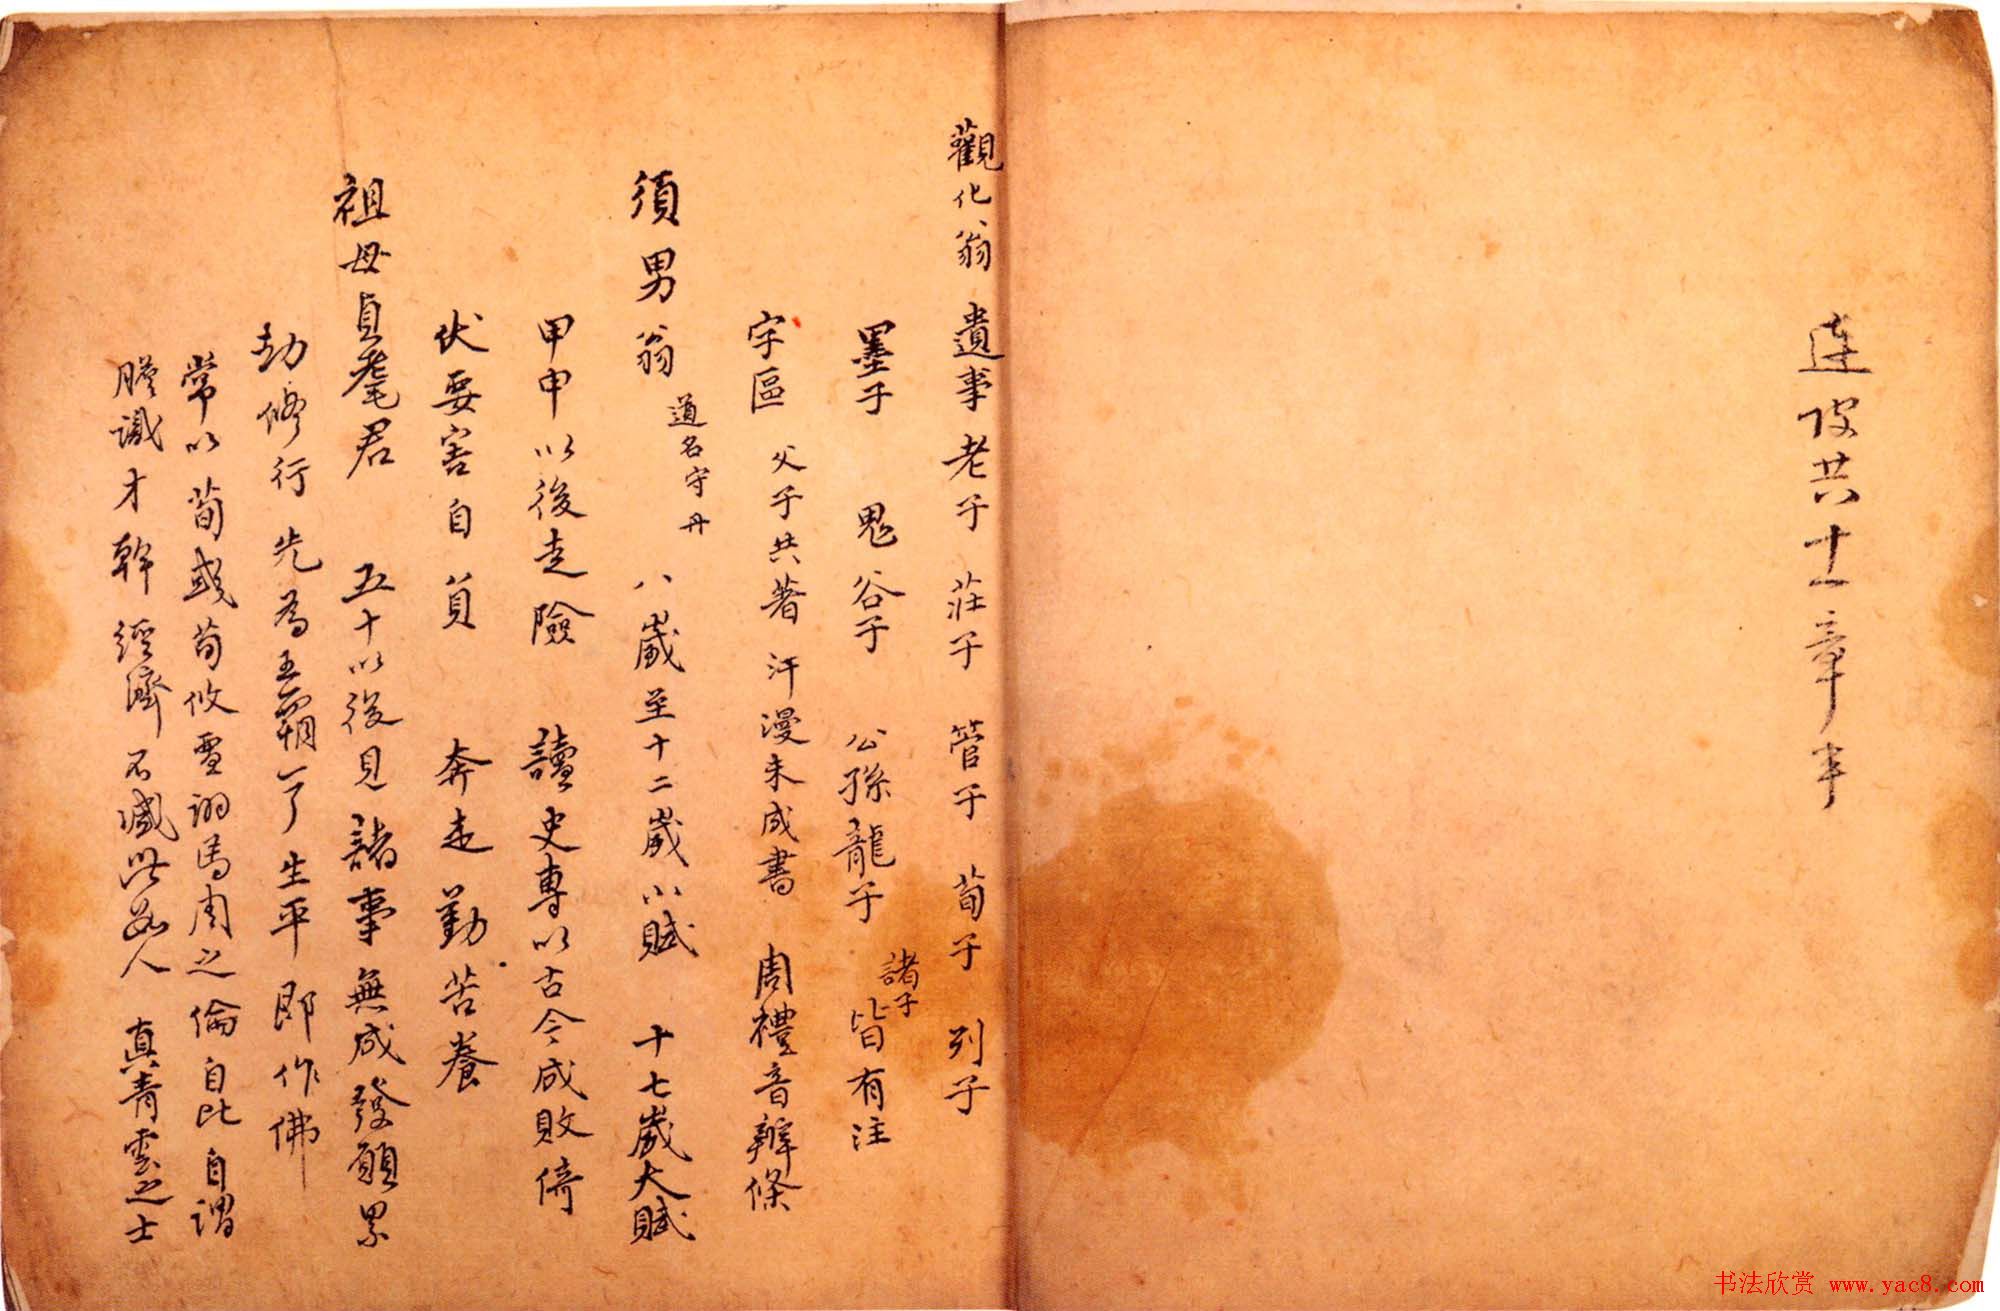 连收共十一章半
觀化翁 遺事 老子 莊子 管子 荀子 列子
墨子 鬼谷子 公孫龍子 諸子 皆有注
字區 父子共著 汗漫未成書 周禮音辨條
須男翁 道名守丹 八歲至十二歲小賦 十七歲大賦
甲申以後走險 讀史專以古今成敗倚
伏要害自負 奔走勤苦養
祖母貞耄君 五十以後見諸事無成發願累
劫修行先為五霸一了生平即作佛
常以荀彧荀攸賈詡馬周之倫自比自謂
膽識才幹經濟不減此品人 真青雲之士
书法欣赏 www.yac8.com